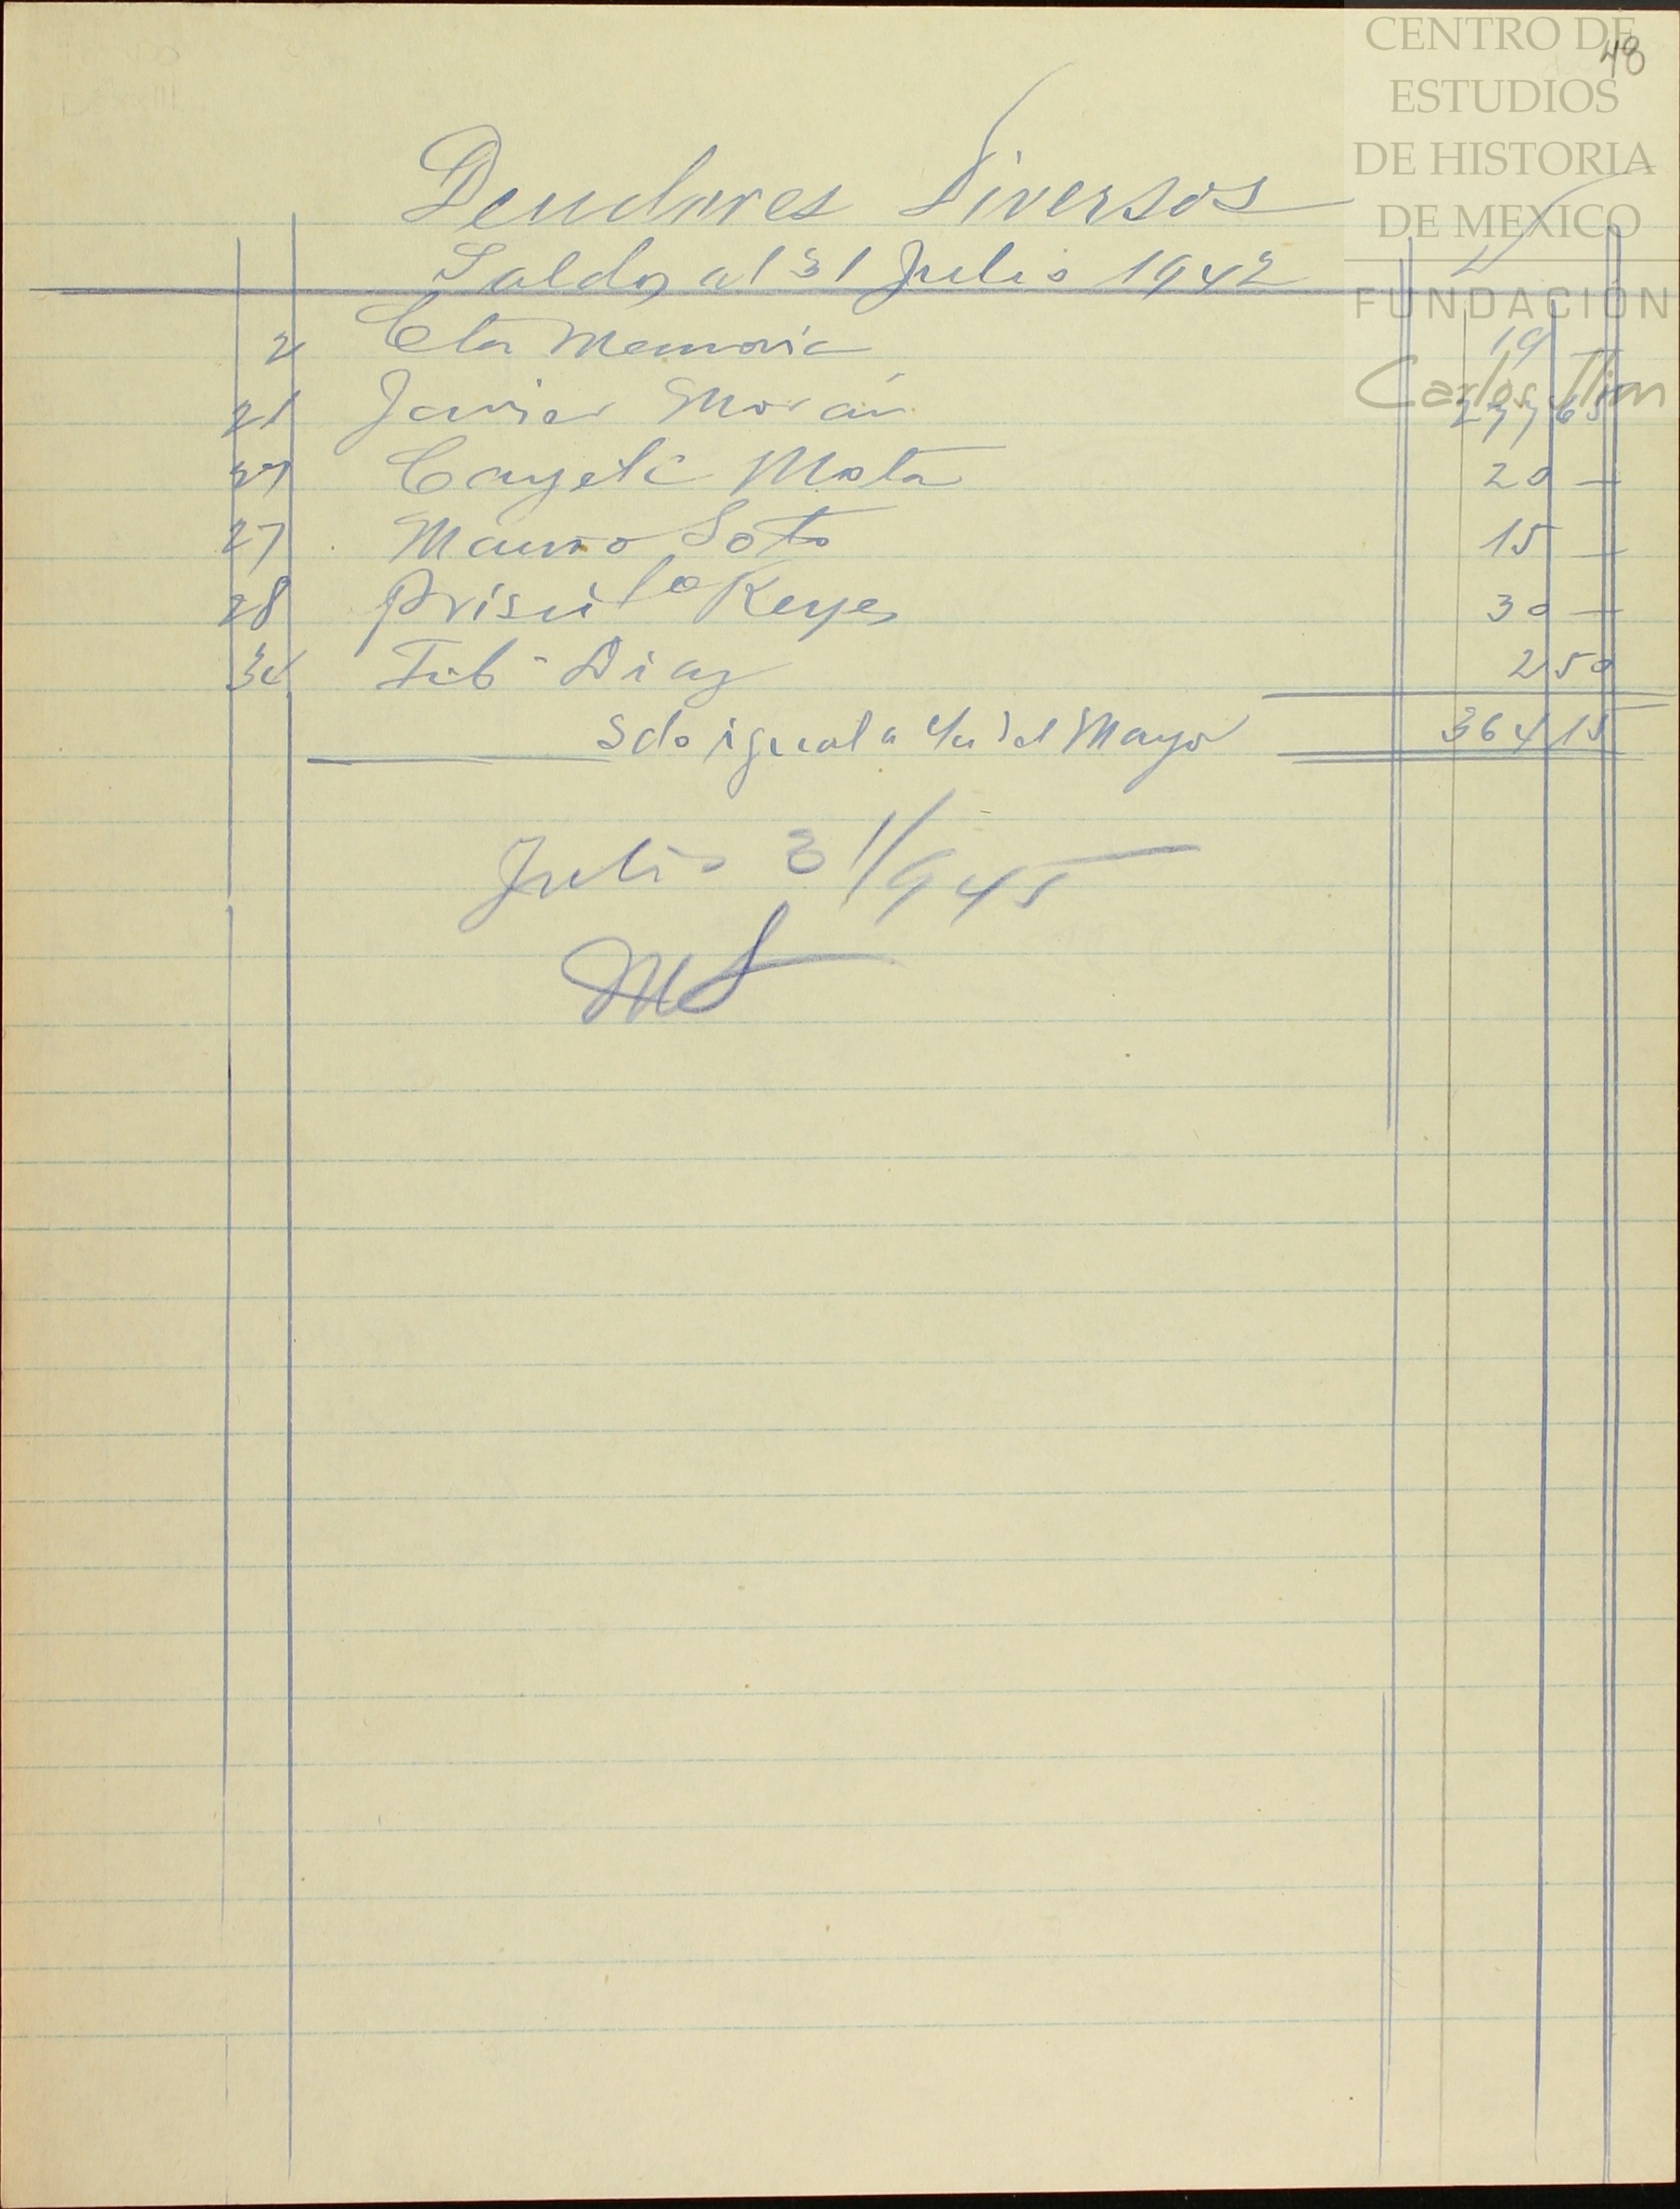 CENTRO DE
48
ESTUDIOS
DE HISTORIA
DE MEXICO
FUNDACIÓN
Carlos Slim
Deudores Diversos
Saldos al 31 Julio 1942
2 Cta Memoria 19
21 Javier Morán 277 65
27 Cayet° Mota 20 —
27 Mauro Soto 15 —
28 Reyes 30 —
Diaz 2 50
Sdo igual a Cta del Mayor 364 15
Julio 31/945
MS